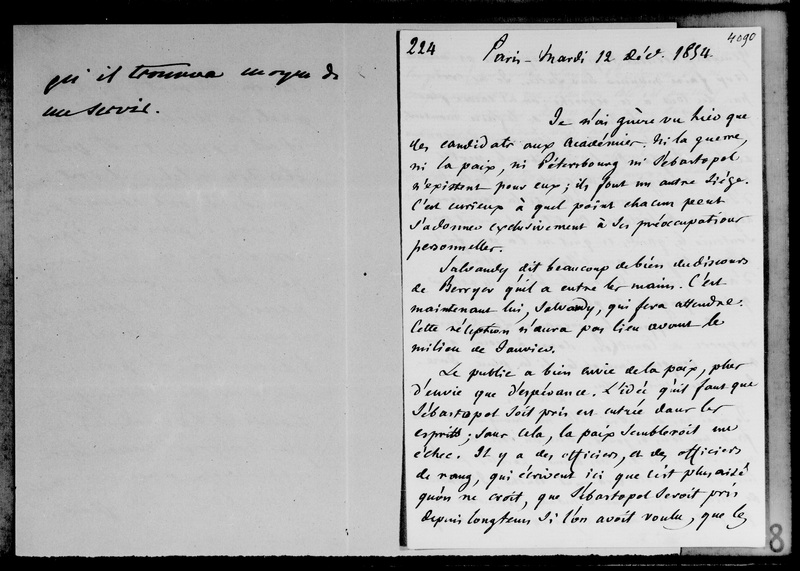 qu'il trouvera moyen de
me servir.
224
4090
Paris - Mardi 12 déc. 1854.
Je n'ai guère vu hier que
des candidats aux Académies. Ni la guerre,
ni la paix, ni Pétersbourg ni Sébastopol
n'existent pour eux ; ils font un autre siège.
C'est curieux à quel point chacun peut
s'adonner exclusivement à ses préoccupations
personnelles.
Salvandy dit beaucoup de bien du discours
de Berryer qu'il a entre les mains. C'est
maintenant lui, Salvandy, qui fera attendre.
Cette réception n'aura pas lieu avant le
milieu de Janvier.
Le public a bien envie de la paix, plus
d'envie que d'espérance. L'idée qu'il faut que
Sébastopol soit pris est entrée dans les
esprits ; sans cela, la paix sembleroit un
échec. Il y a des officiers, et des officiers
de rang, qui écrivent ici que c'est plus aisé
qu'on ne croit, que Sébastopol seroit pris
depuis longtems si l'on avoit voulu, que les
8